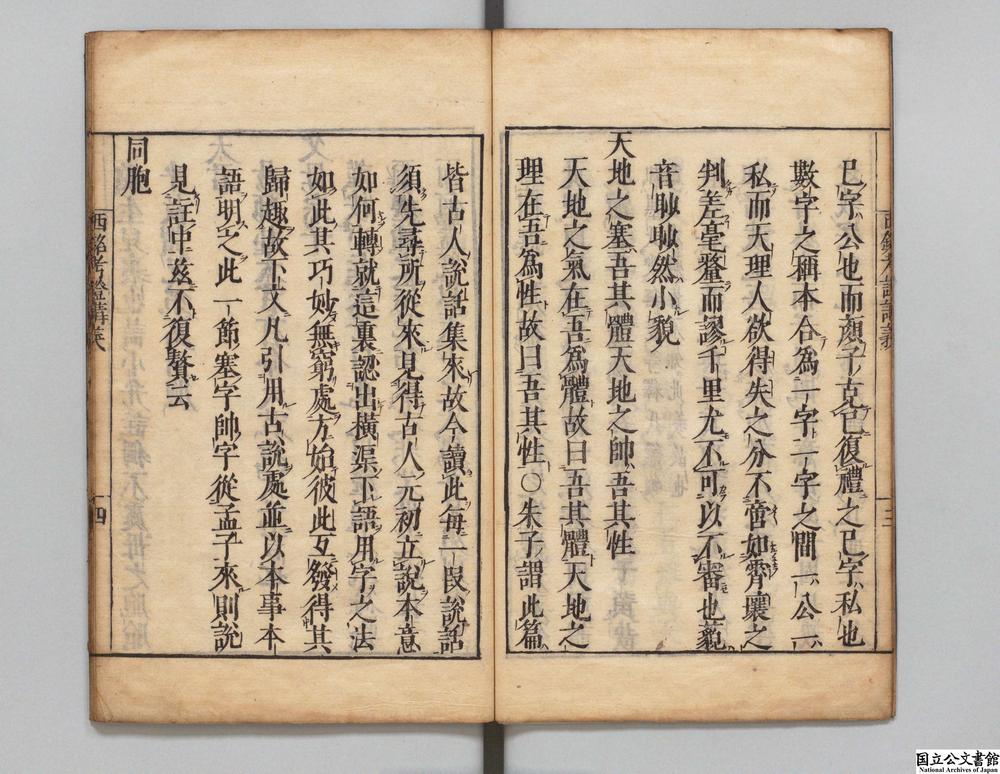 己字公也而顏子克己復禮之己字私也
數字之稱本合為一字一字之間一公一
私而天理人欲得失之分不啻如霄壤之
判差毫釐而謬千里尤不可以不審也藐
音眇眇然小貌
天地之塞吾其體天地之帥吾其性
天地之氣在吾為體故曰吾其體天地之
理在吾為性故曰吾其性○朱子謂此篇
三
皆古人說話集來故今讀此每一段說話
須先尋所從來見得古人元初立說本意
如何轉就這裏認出橫渠下語用字之法
如此其巧妙無窮處方始彼此互發得其
歸趣故下文凡引用古說處並以本事本
語明之此一節塞字帥字從孟子來則說
見註中茲不復贅云
同胞
西銘考證講義
四
国立公文書館
National Archives of Japan